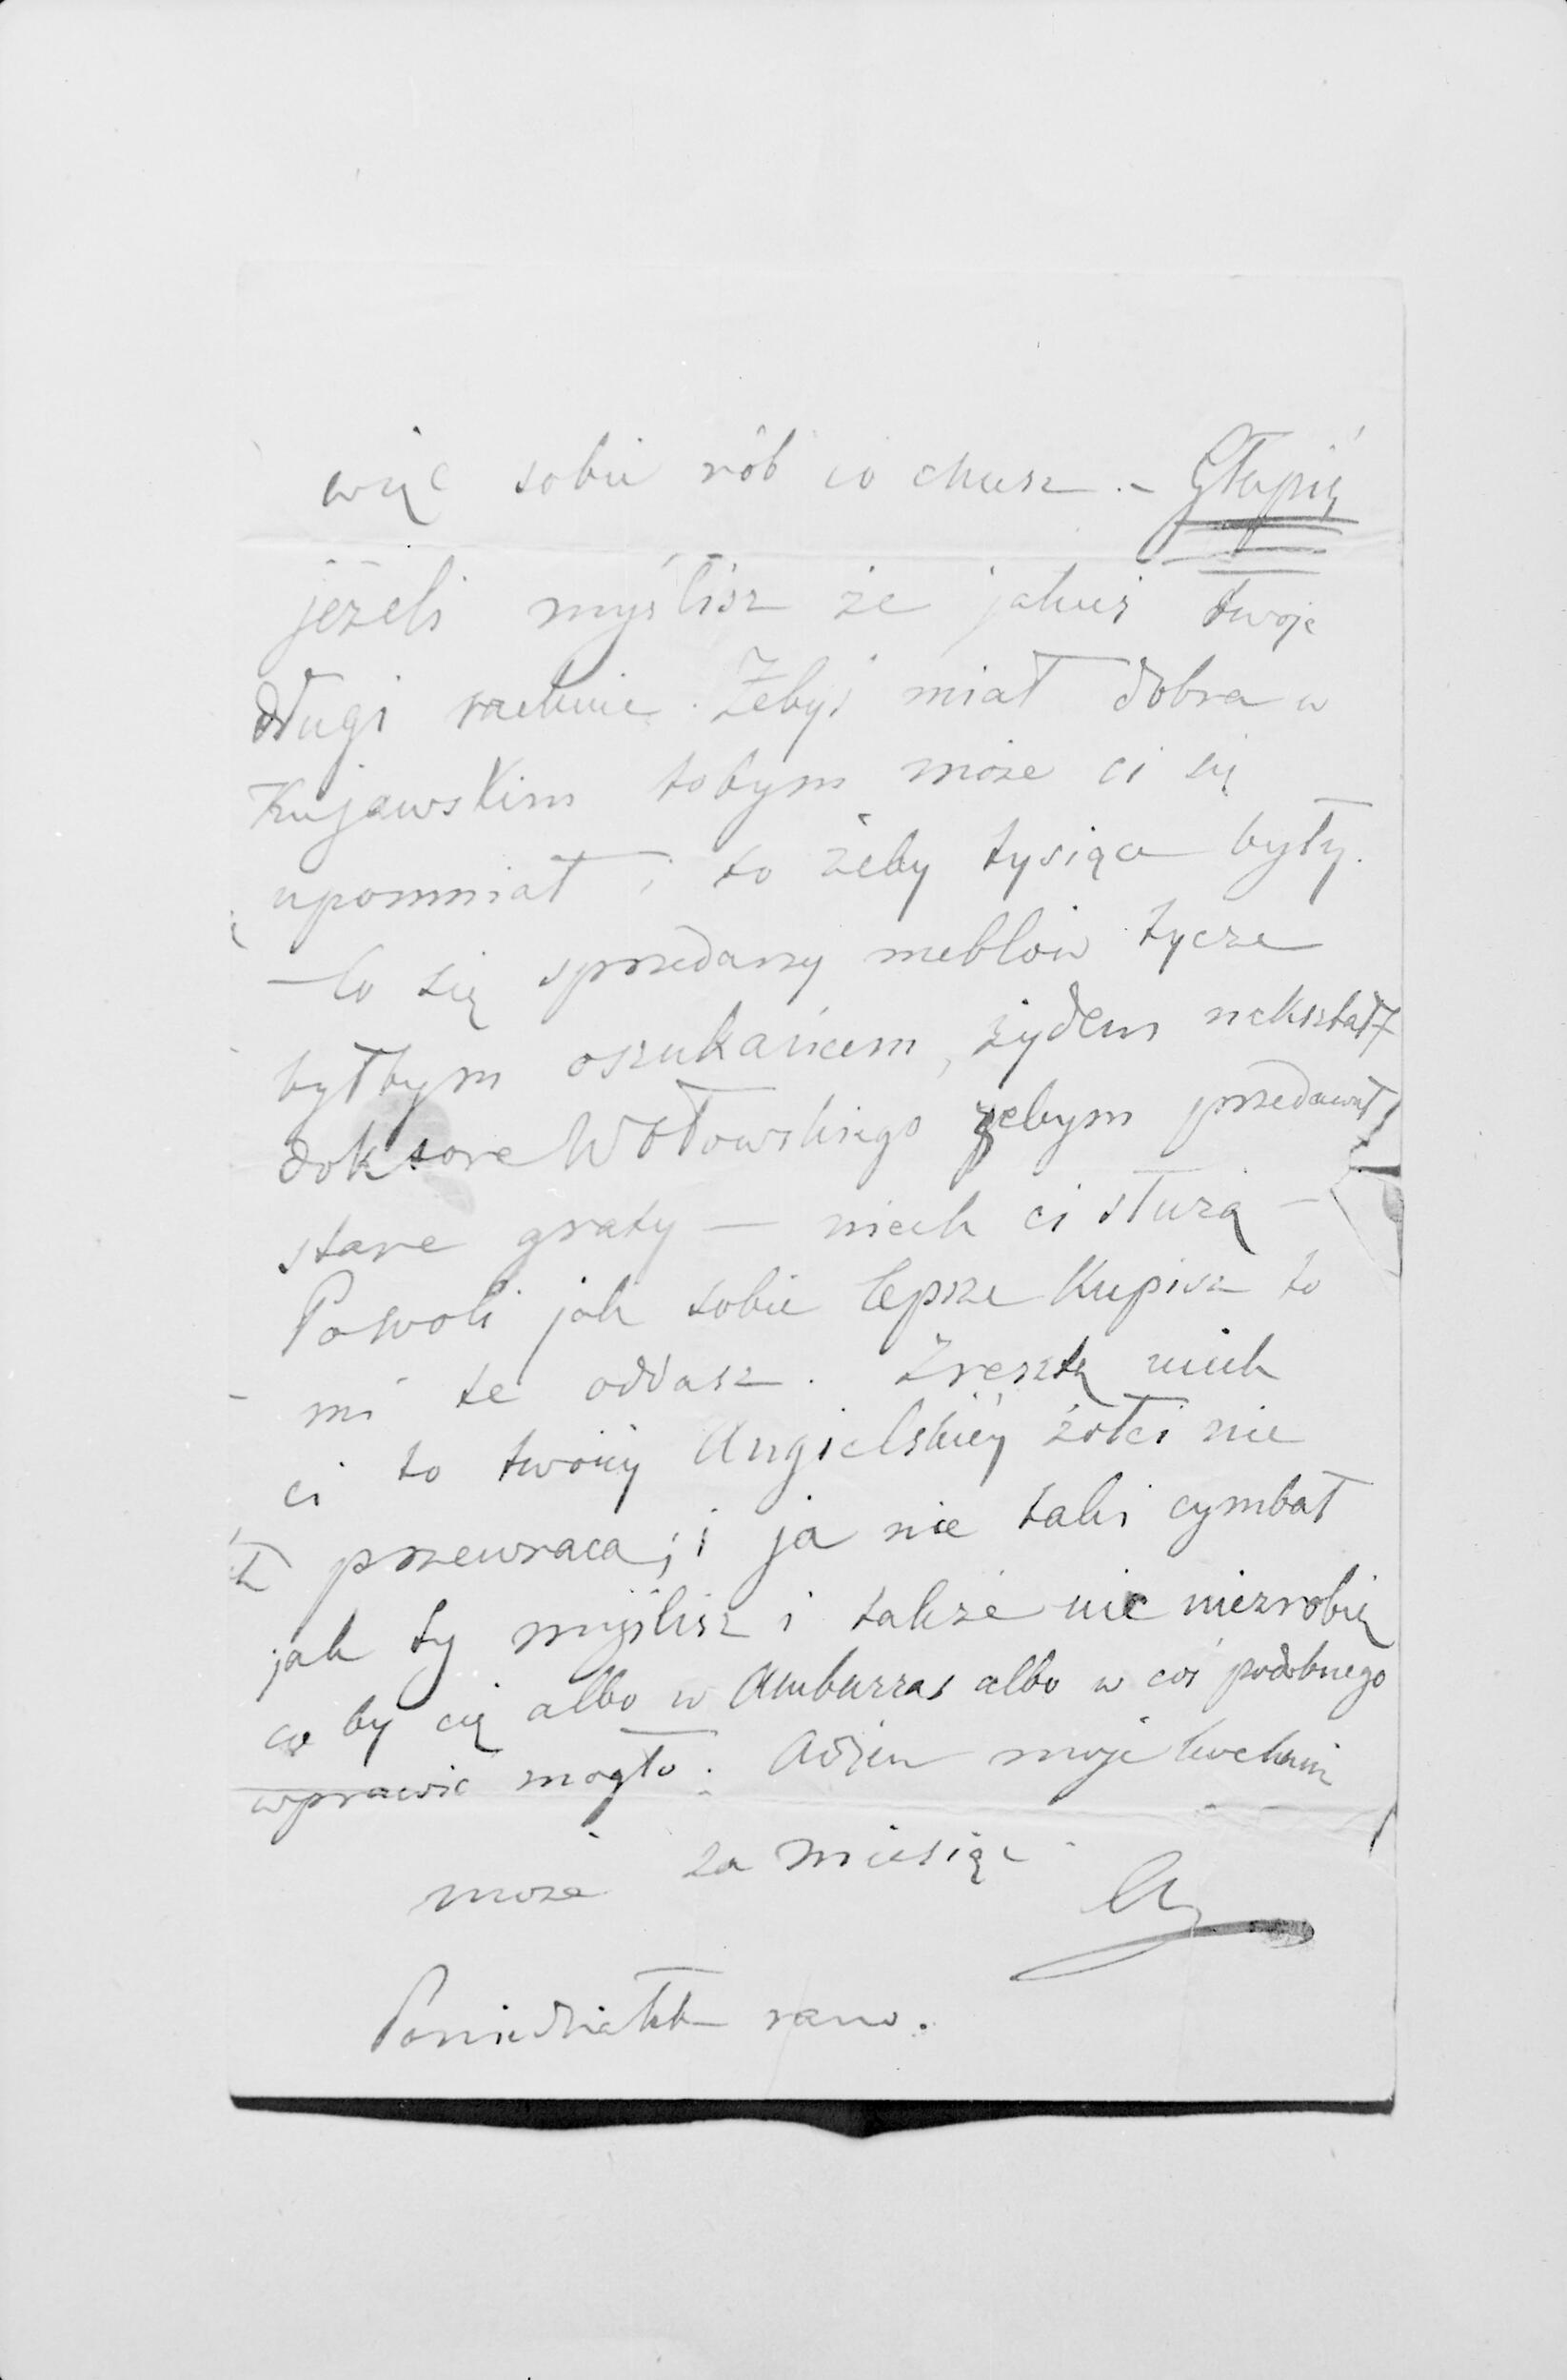 więc sobie rób co chcesz. – Głupiś
jeżeli myślisz że jakieś twoje
długi rachuie. Żebyś miał dobra w
Kujawskim tobym może ci się
upomniał i to żeby tysiące były.
– Co się sprzedaży meblów tycze
byłbym oszukańcem, żydem nakształt
doktora Wołowskiego żebym przedawał
stare graty — niech ci służą –
Powoli jak sobie lepsze kupisz to
mi te oddasz. Zresztą niech
ci to twoiéy Angielskiéy żółci nie
przewraca; i ja nie taki cymbał
jak ty myślisz i takze nic niezrobię
co by cię albo w Ambarras albo w coś podobnego
wprawić mogło. Adieu moje
może za miesiąc
A
Poniedziałek rano.